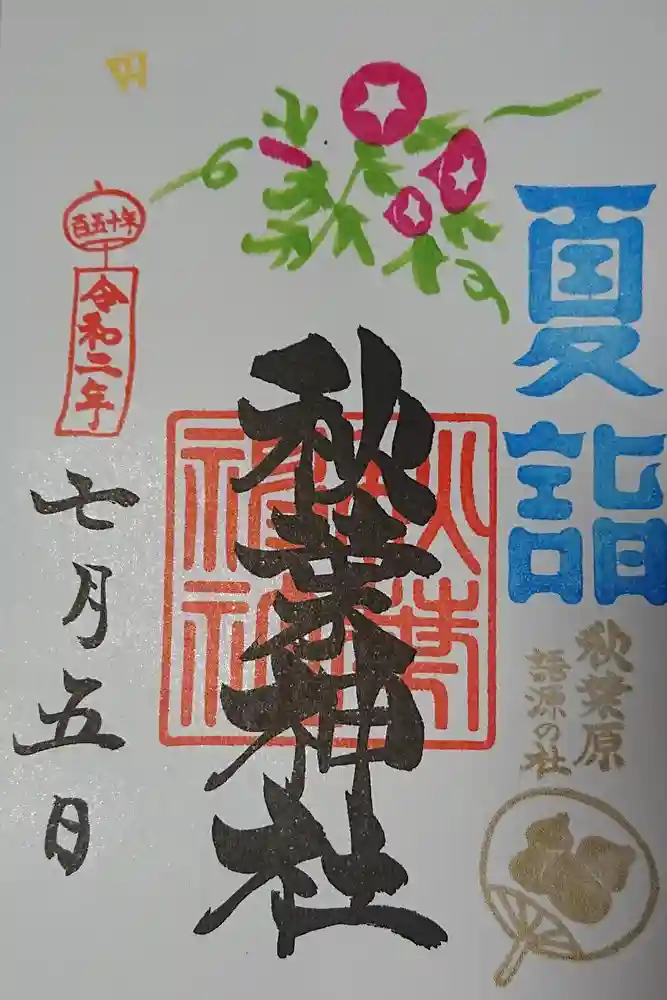 夏詣
秋葉原
語源の社
秋葉神社
百五十年
令和二年
七月五日